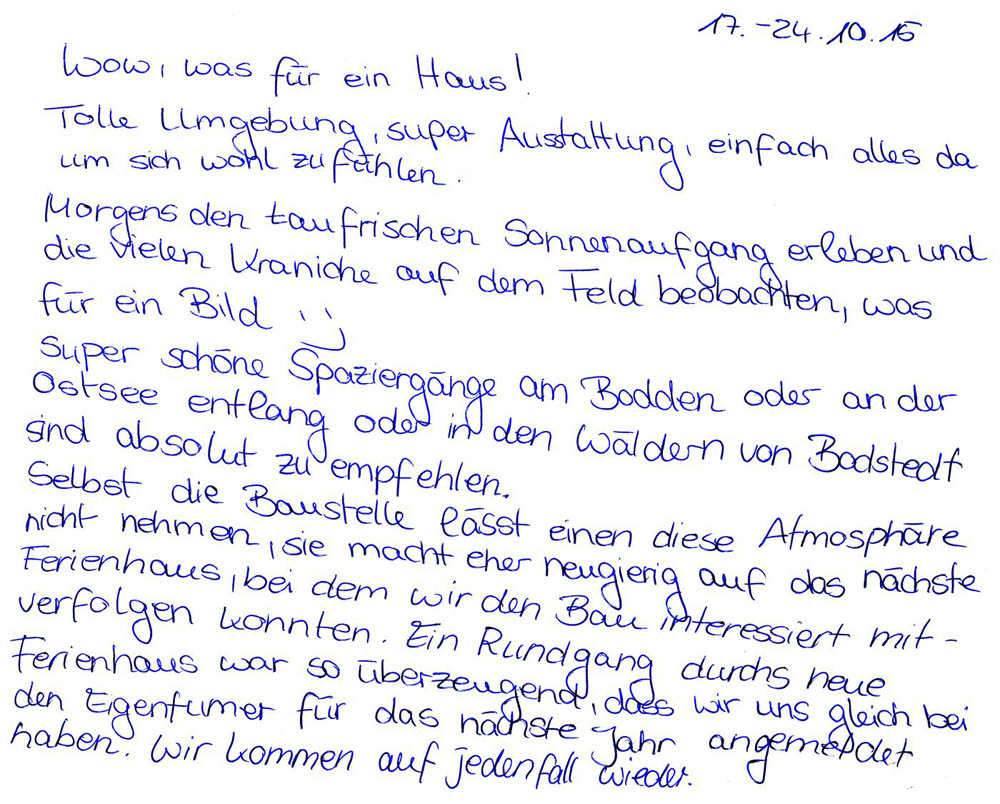 17.-24.10.15
Wow, was für ein Haus!
Tolle Umgebung, super Ausstattung, einfach alles da
um sich wohl zu fühlen.
Morgens den taufrischen Sonnenaufgang erleben und
die vielen Kraniche auf dem Feld beobachten, was
für ein Bild :)
Super schöne Spaziergänge am Bodden oder an der
Ostsee entlang oder in den Wäldern von Bodstedt
sind absolut zu empfehlen.
Selbst die Baustelle lässt einen diese Atmosphäre
nicht nehmen, sie macht eher neugierig auf das nächste
Ferienhaus, bei dem wir den Bau interessiert mit-
verfolgen konnten. Ein Rundgang durchs neue
Ferienhaus war so überzeugend, dass wir uns gleich bei
den Eigentumer für das nächste Jahr angemeldet
haben. Wir kommen auf jedenfall wieder.